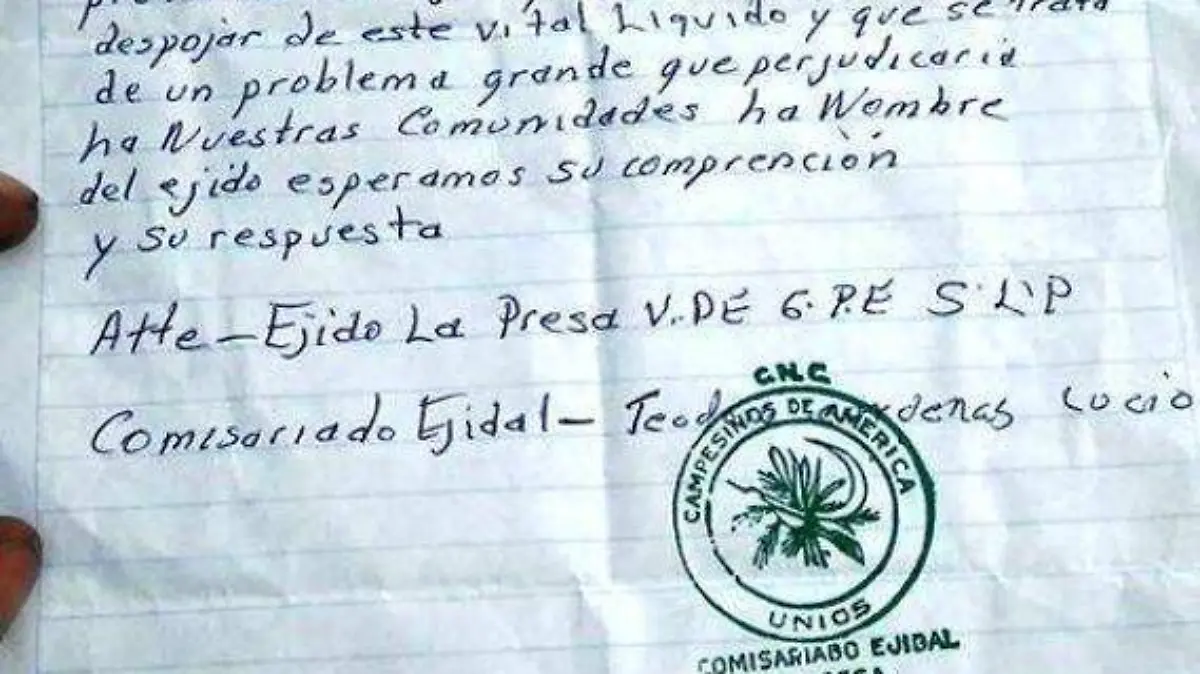 despojar de este vital Liquido y que se trata
de un problema grande que perjudicaria
ha Nuestras Comunidades ha Nombre
del ejido esperamos su comprención
y su respuesta
Atte - Ejido La Presa V. DE G. P.E S.L.P
Comisariado Ejidal - Lucio
C.N.C
CAMPESINOS DE AMERICA
UNIOS
COMISARIADO EJIDAL